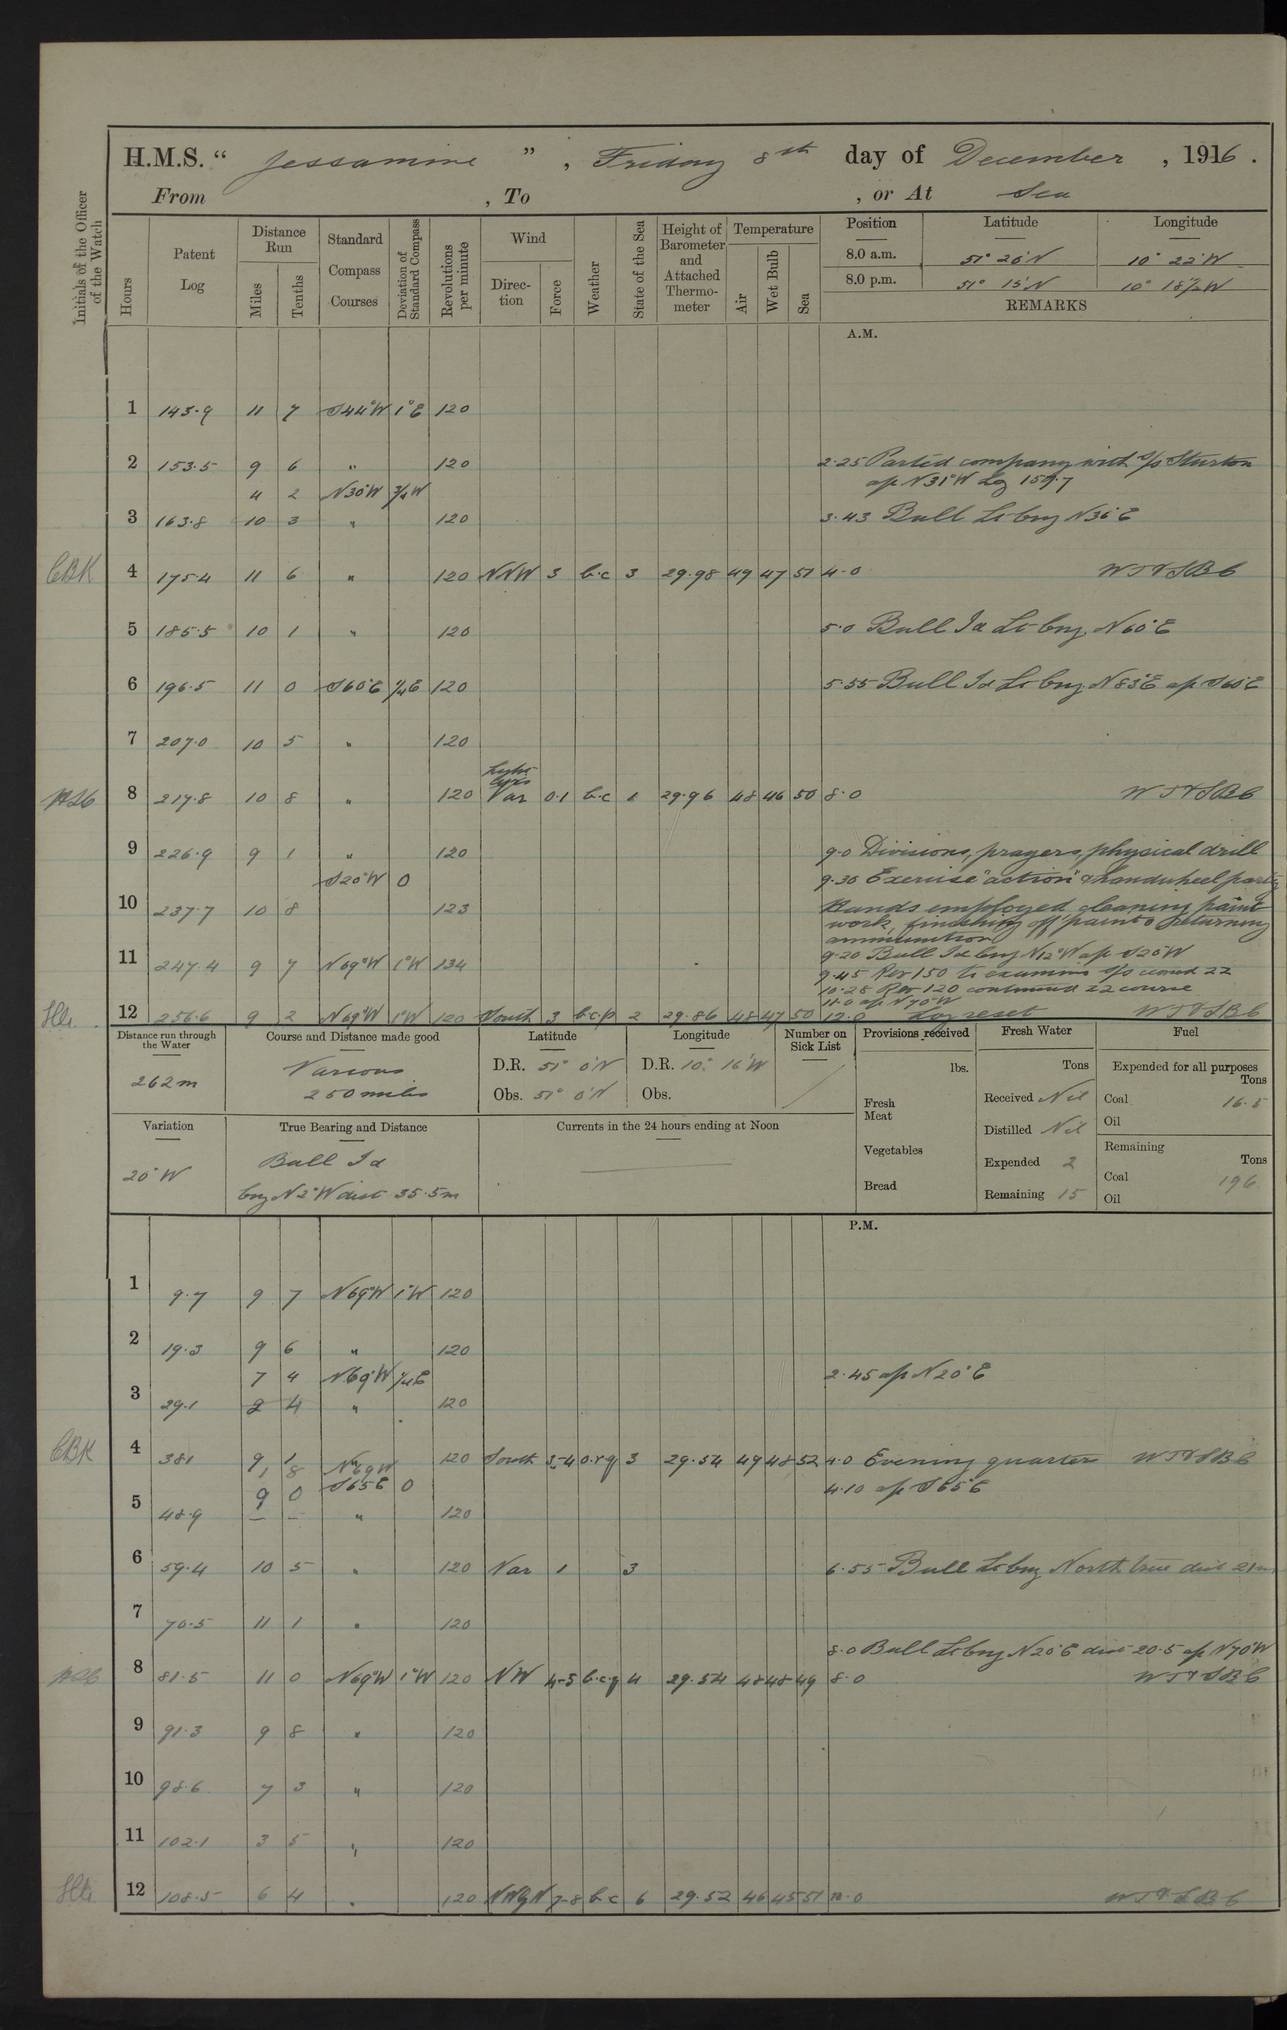 H.M.S. “ Jessamine ” , Friday 8th day of December , 1916 .
From , To , or At Sea
Initials of the Officer of the Watch
Hours
Patent Log
Distance Run
Miles
Tenths
Standard Compass Courses
Deviation of Standard Compass
Revolutions per minute
Wind
Direction
Force
Weather
State of the Sea
Height of Barometer and Attached Thermometer
Temperature
Air
Wet Bulb
Sea
Position Latitude Longitude
8.0 a.m. 51° 26'N 10° 22'W
8.0 p.m. 51° 15'N 10° 18½'W
REMARKS
A.M.
1 143.9 11 7 S44°W 1°E 120
2 153.5 9 6 " 120 2.25 Parted company with s/s Sturton
4 2 N30°W ¾W a/c N31°W Log 157.7
3 163.8 10 3 " 120 3.43 Bull Lt brg N36°E
CBK 4 175.4 11 6 " 120 NNW 3 b.c 3 29.98 49 47 51 4.0 WT&SBC
5 185.5 10 1 " 120 5.0 Bull Id Lt brg N60°E
6 196.5 11 0 S60°E ¼E 120 5.55 Bull Id Lt brg N83°E a/c S60°E
7 207.0 10 5 " 120
Light
airs
8 217.8 10 8 " 120 Var 0.1 b.c 1 29.96 48 46 50 8.0 WT&SBC
9 226.9 9 1 " 120 9.0 Divisions, prayers, physical drill
S20°W 0 9.30 Exercise "action" & handwheel party
10 237.7 10 8 123 Hands employed cleaning paint
work, finishing off paint & returning
ammunition
9.20 Bull Id brg N12°W a/c S20W
11 247.4 9 7 N69°W 1°W 134 9.45 Rev 150 to examine s/s round 22
10.28 Rev 120 continued 22 course
11.0 a/c N70°W
12 256.6 9 2 N69°W 1°W 120 South 3 b.c.p 2 29.86 48 47 50 12.0 Log reset WT&SBC
Distance run through the Water
262m
Course and Distance made good
Various
250 miles
Latitude
D.R. 51° 0'N
Obs. 51° 0'N
Longitude
D.R. 10° 16'W
Obs.
Number on Sick List
Provisions received
lbs.
Fresh Meat
Vegetables
Bread
Fresh Water
Tons
Received Nil
Distilled Nil
Expended 2
Remaining 15
Fuel
Expended for all purposes
Tons
Coal 16.5
Oil
Remaining
Tons
Coal 196
Oil
Variation
20°W
True Bearing and Distance
Bull Id
brg N2°W dist 35.5m
Currents in the 24 hours ending at Noon
P.M.
1 9.7 9 7 N69°W 1°W 120
2 19.3 9 6 " 120
7 4 N69°W ¼E 2.45 a/c N20°E
3 29.1 2 4 " 120
CBK 4 38.1 9 1 120 South 3-4 o.r.q 3 29.54 49 48 52 4.0 Evening quarters WT&SBC
1 8 N69W
9 0 S65E 0 4.10 a/c S65°E
5 48.9 – – " 120
6 59.4 10 5 " 120 Var 1 3 6.55 Bull Lt brg North true dist 21m
7 70.5 11 1 " 120
8.0 Bull Lt brg N20°E dist 20.5 a/c N70°W
8 81.5 11 0 N69°W 1°W 120 NW 4-5 b.c.q 4 29.54 48 48 49 8.0 WT&SBC
9 91.3 9 8 " 120
10 98.6 7 3 " 120
11 102.1 3 5 " 120
12 108.5 6 4 " 120 NWbyN 7-8 b.c 6 29.52 46 45 51 12.0 WT&SBC